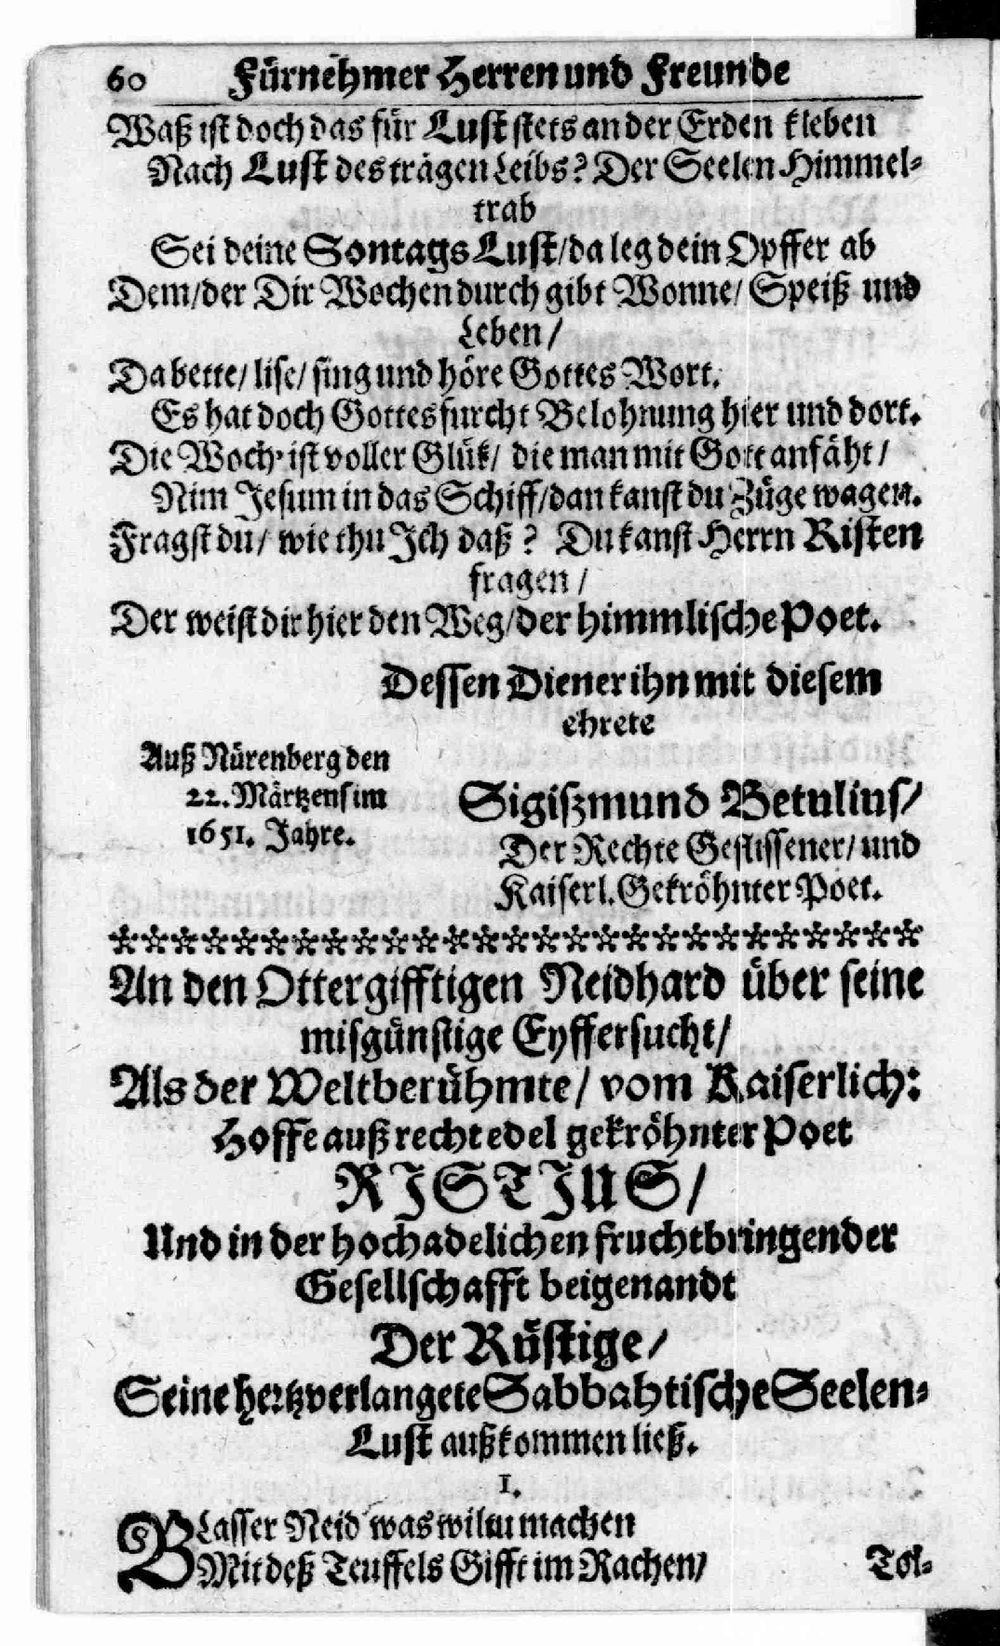 60 Fürnehmer Herren und Freunde
Waß ist doch das für Lust stets an der Erden kleben
Nach Lust des trägen Leibs? Der Seelen Himmel-
trab
Sei deine Sontags Lust/ da leg dein Opffer ab
Dem/ der Dir Wochen durch gibt Wonne/ Speiß und
Leben/
Da bette/ lise/ sing und höre Gottes Wort.
Es hat doch Gottesfurcht Belohnung hier und dort.
Die Woch' ist voller Glük/ die man mit Gott anfäht/
Nim Jesum in das Schiff/ dan kanst du Züge wagen.
Fragst du/ wie thu Jch daß? Du kanst Herrn Risten
fragen/
Der weist dir hier den Weg/ der himmlische Poet.
Dessen Diener ihn mit diesem
ehrete
Auß Nürenberg den
22. Märtzens im
1651. Jahre.
Sigißmund Betulius/
Der Rechte Geflissener/ und
Kaiserl. Gekröhnter Poet.
An den Ottergifftigen Neidhard über seine
misgünstige Eyffersucht/
Als der Weltberühmte/ vom Kaiserlich:
Hoffe auß recht edel gekröhnter Poet
RISTIUS/
Und in der hochadelichen fruchtbringender
Gesellschafft beigenandt
Der Rüstige/
Seine hertzverlangete Sabbahtische Seelen-
Lust außkommen ließ.
1.
BLasser Neid was wiltu machen
Mit deß Teuffels Gifft im Rachen/
Tol-